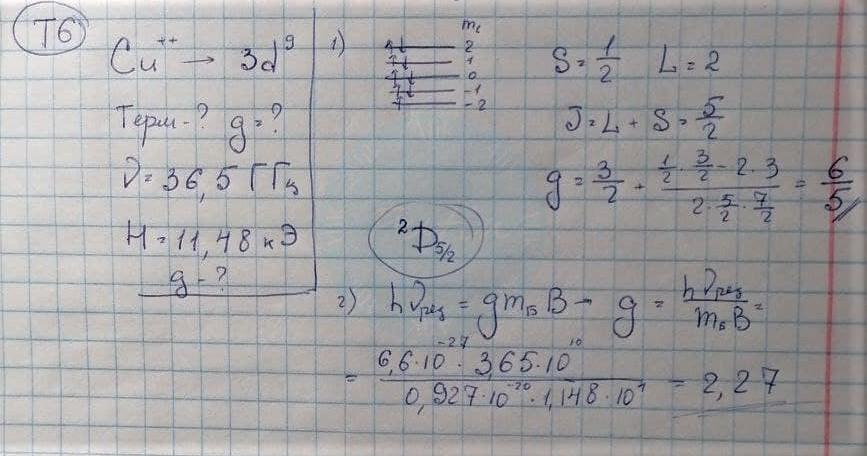 T6
Cu⁺⁺ → 3d⁹
Терм-? g=?
ν = 36,5 ГГц
H = 11,48 кЭ
g - ?
1)
m_l
2
1
0
-1
-2
S = 1/2 L = 2
J = L + S = 5/2
g = 3/2 + (1/2 · 3/2 - 2·3)/(2 · 5/2 · 7/2) = 6/5
²D₅/₂
2) hν_рез = g m_Б B → g = hν_рез/(m_Б B) =
= (6,6·10⁻²⁷ · 365·10¹⁰)/(0,927·10⁻²⁰ · 1,148·10⁴) = 2,27